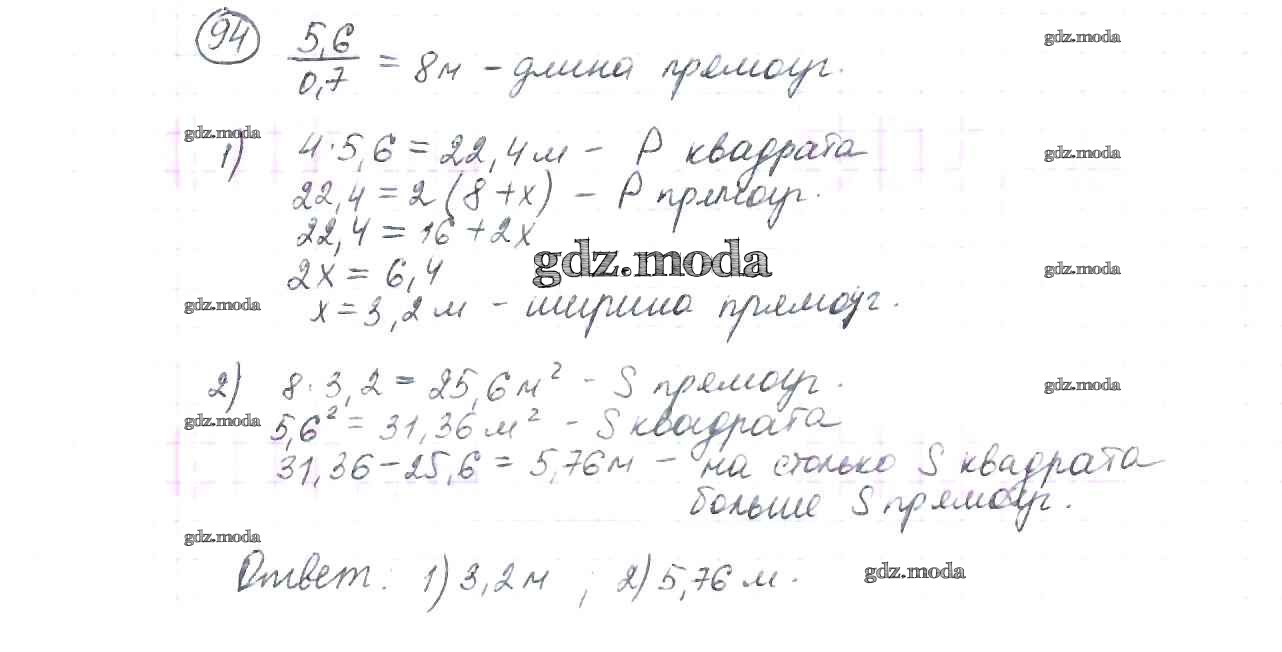 94 5,6/0,7 = 8м - длина прямоуг.
gdz.moda
gdz.moda
1) 4·5,6 = 22,4 м - P квадрата
gdz.moda
22,4 = 2 (8+x) - P прямоуг.
22,4 = 16 + 2x
gdz.moda
2x = 6,4
gdz.moda
gdz.moda
x = 3,2 м - ширина прямоуг.
2) 8·3,2 = 25,6 м² - S прямоуг.
gdz.moda
gdz.moda
5,6² = 31,36 м² - S квадрата
31,36 - 25,6 = 5,76 м - на столько S квадрата
больше S прямоуг.
gdz.moda
Ответ: 1) 3,2 м ; 2) 5,76 м.
gdz.moda